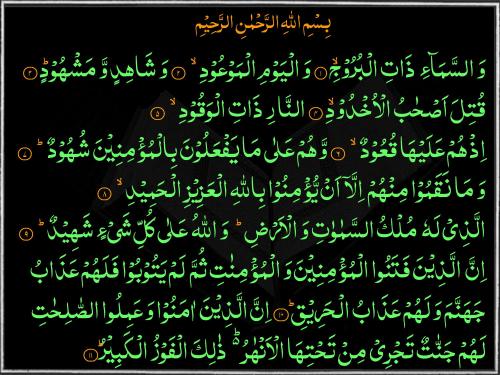 بِسْمِ اللهِ الرَّحْمٰنِ الرَّحِيْمِ
وَ السَّمَآءِ ذَاتِ الْبُرُوْجِۙ ﴿۱﴾ وَ الْيَوْمِ الْمَوْعُوْدِۙ ﴿۲﴾ وَ شَاهِدٍ وَّ مَشْهُوْدٍؕ ﴿۳﴾
قُتِلَ اَصْحٰبُ الْاُخْدُوْدِۙ ﴿۴﴾ النَّارِ ذَاتِ الْوَقُوْدِۙ ﴿۵﴾
اِذْ هُمْ عَلَيْهَا قُعُوْدٌۙ ﴿۶﴾ وَّ هُمْ عَلٰى مَا يَفْعَلُوْنَ بِالْمُؤْمِنِيْنَ شُهُوْدٌؕ ﴿۷﴾
وَ مَا نَقَمُوْا مِنْهُمْ اِلَّاۤ اَنْ يُّؤْمِنُوْا بِاللهِ الْعَزِيْزِ الْحَمِيْدِۙ ﴿۸﴾
الَّذِيْ لَهٗ مُلْكُ السَّمٰوٰتِ وَ الْاَرْضِؕ وَ اللهُ عَلٰى كُلِّ شَيْءٍ شَهِيْدٌؕ ﴿۹﴾
اِنَّ الَّذِيْنَ فَتَنُوا الْمُؤْمِنِيْنَ وَ الْمُؤْمِنٰتِ ثُمَّ لَمْ يَتُوْبُوْا فَلَهُمْ عَذَابُ
جَهَنَّمَ وَ لَهُمْ عَذَابُ الْحَرِيْقِؕ ﴿۱۰﴾ اِنَّ الَّذِيْنَ اٰمَنُوْا وَ عَمِلُوا الصّٰلِحٰتِ
لَهُمْ جَنّٰتٌ تَجْرِيْ مِنْ تَحْتِهَا الْاَنْهٰرُؕ ذٰلِكَ الْفَوْزُ الْكَبِيْرُؕ ﴿۱۱﴾